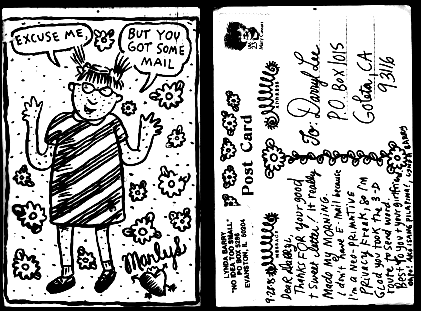 EXCUSE ME,
BUT YOU
GOT SOME
MAIL
Marlys
Post Card
LYNDA BARRY
"NO IDEA TOO SMALL"
PO BOX
EVANSTON, IL 60204
To: Darryl Lee
P.O. Box 1015
Goleta, CA
93116
Thanks FOR your good
+ Sweet Letter! It really
Made My MORNING.
I don't have E-Mail because
I'm a Neo-Primitive
Privacy Freak, So I'm
Glad you took the 3-D
route to send word.
Best to you + your girlfriend